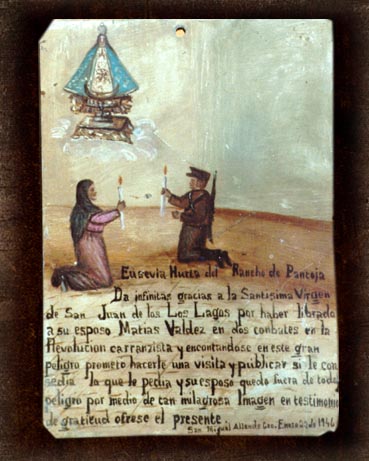 Eusevia Huria del Rancho de Pantoja
Da infinitas gracias a la Santisima Virgen
de San Juan de los Los Lagos por haber librado
a su esposo Matias Valdez en dos conbates en la
Revolucion carranzista y encontandose en este gran
peligro prometo hacerle una visita y publicar si le con
sedia lo que le pedia y su esposo quedo fuera de todo
peligro por medio de tan milagrosa Imagen en testimonio
de gratiud ofrese el presente.
San Miguel Allende Gto. Enero 29 de 1946